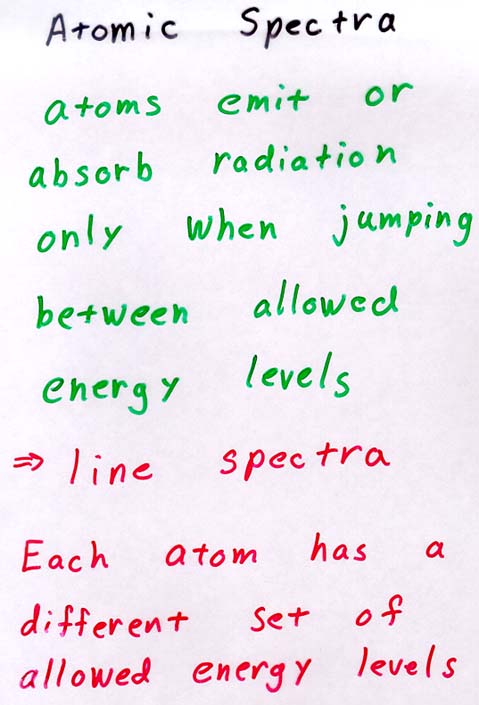 Atomic Spectra
atoms emit or
absorb radiation
only when jumping
between allowed
energy levels
⇒ line spectra
Each atom has a
different set of
allowed energy levels